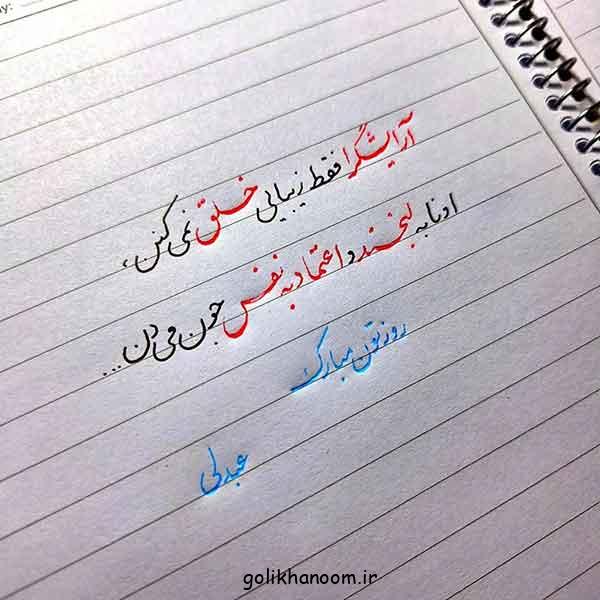 ay:
آرایشگرا فقط زیبایی خلق نمی کنن،
اونا به لبخند و اعتماد به نفس جون می دن...
روزتون مبارک
عبدلی
golikhanoom.ir